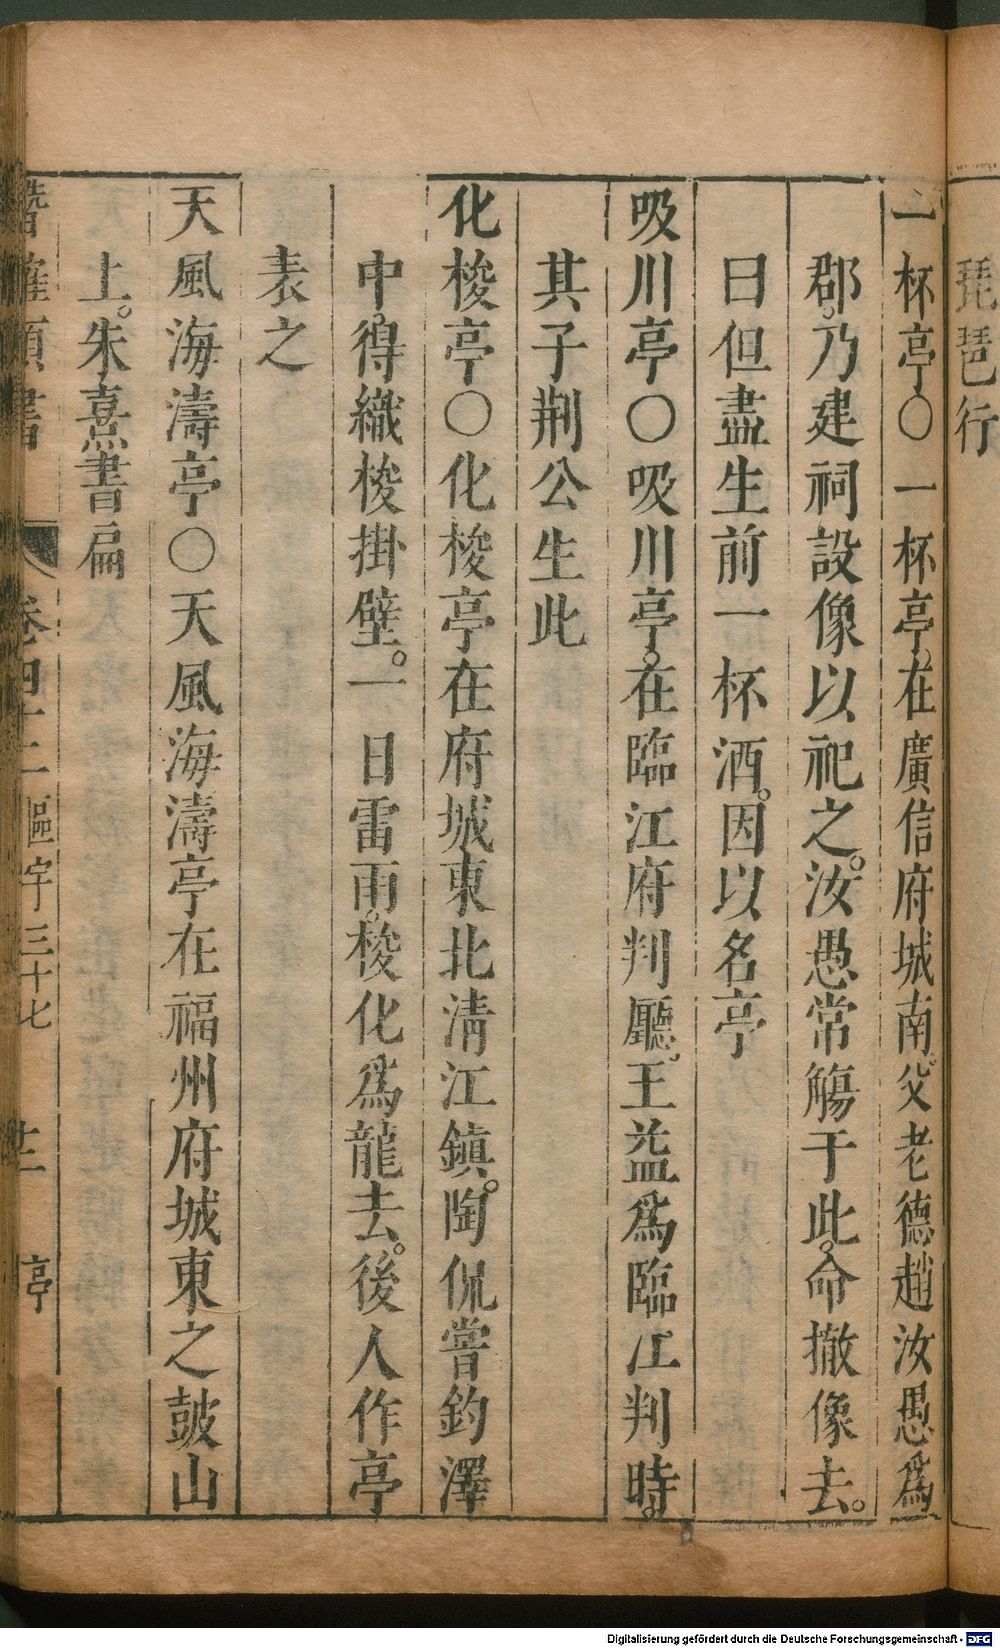 琵琶行
一杯亭○一杯亭。在廣信府城南。父老德趙汝愚爲
郡。乃建祠設像以祀之。汝愚常觴于此。命撤像去。
曰但盡生前一杯酒。因以名亭
吸川亭○吸川亭。在臨江府判廳。王益爲臨江判時。
其子荆公生此
化梭亭○化梭亭在府城東北清江鎮。陶侃嘗釣澤
中。得織梭掛壁。一日雷雨。梭化爲龍去。後人作亭
表之
天風海濤亭○天風海濤亭在福州府城東之鼓山
上。朱熹書扁
卷四十二 區宇三十七 十二 亭
Digitalisierung gefördert durch die Deutsche Forschungsgemeinschaft - DFG